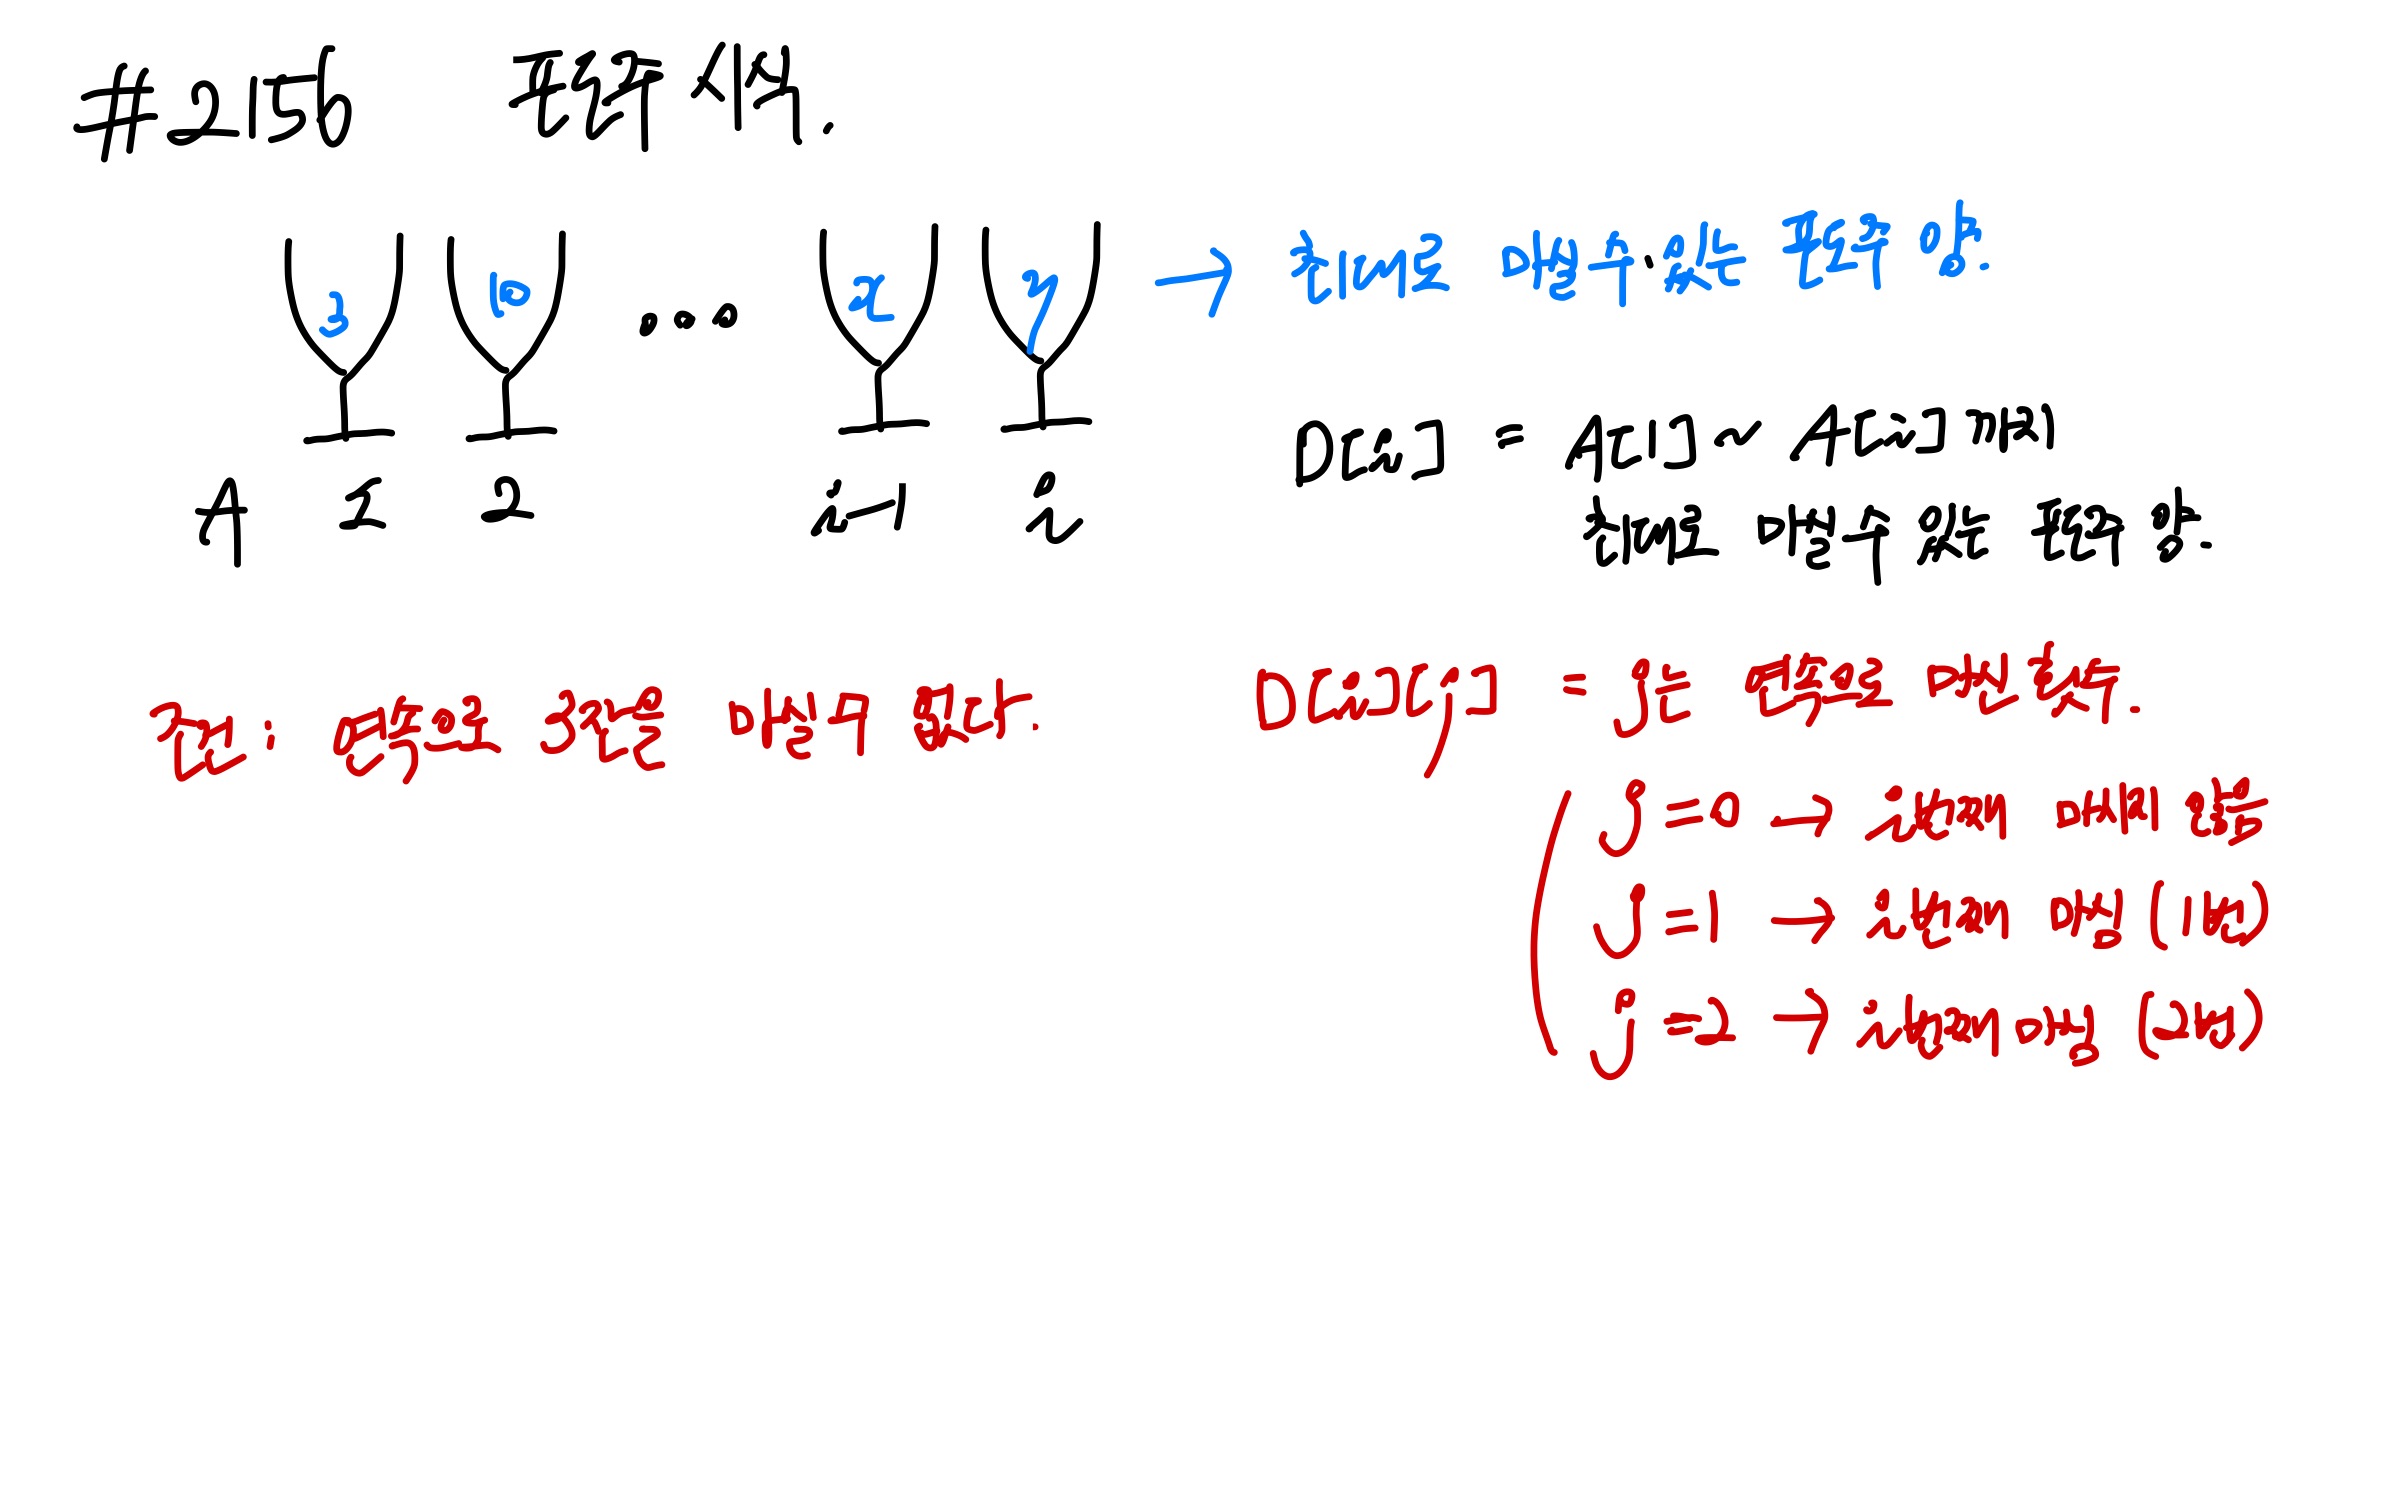 #2156 포도주 시식.
3 10 ... x y → 최대로 마실 수 있는 포도주 양.
A 1 2 i-1 i
D[i] = A[1] ~ A[i] 까지
최대로 마실 수 있는 포도주 양.
조건 : 연속으로 3잔을 마실 수 없다.
D[i][j] = j는 연속으로 마신 횟수.
j=0 → i번째 마시지 않음
j=1 → i번째 마심 (1번)
j=2 → i번째 마심 (2번)